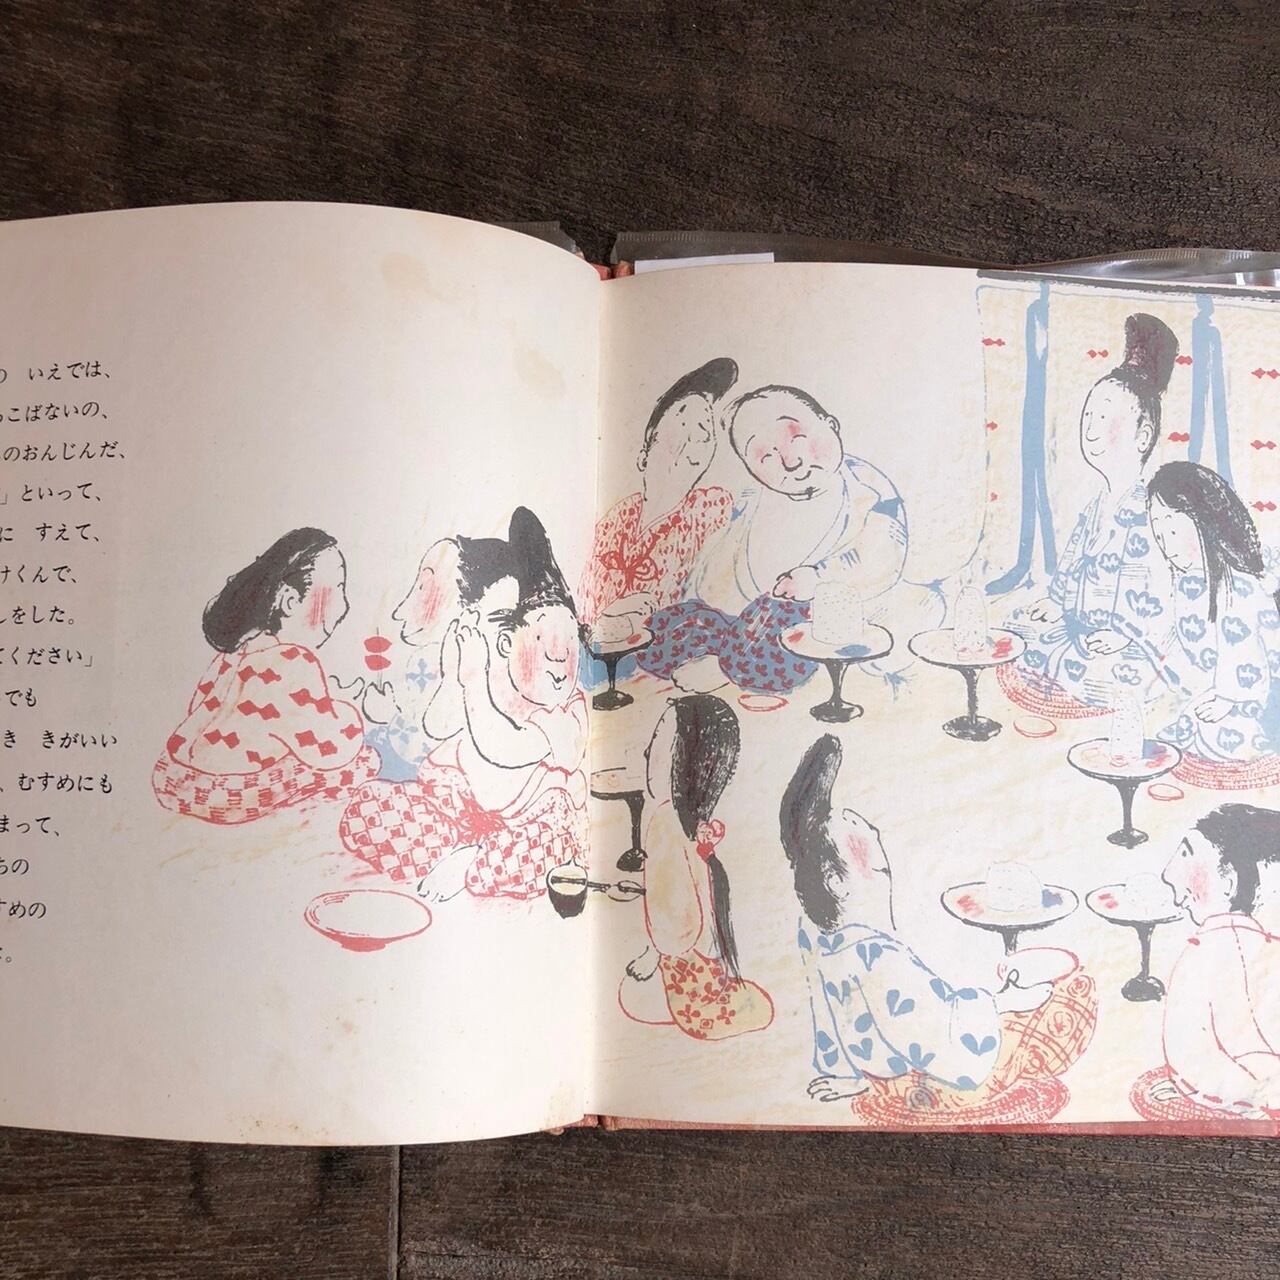 いえでは、
こばないの、
のおんじんだ、
」といって、
に すえて、
けくんで、
しをした。
てください」
でも
き きがいい
、むすめにも
まって、
ちの
すめの
。